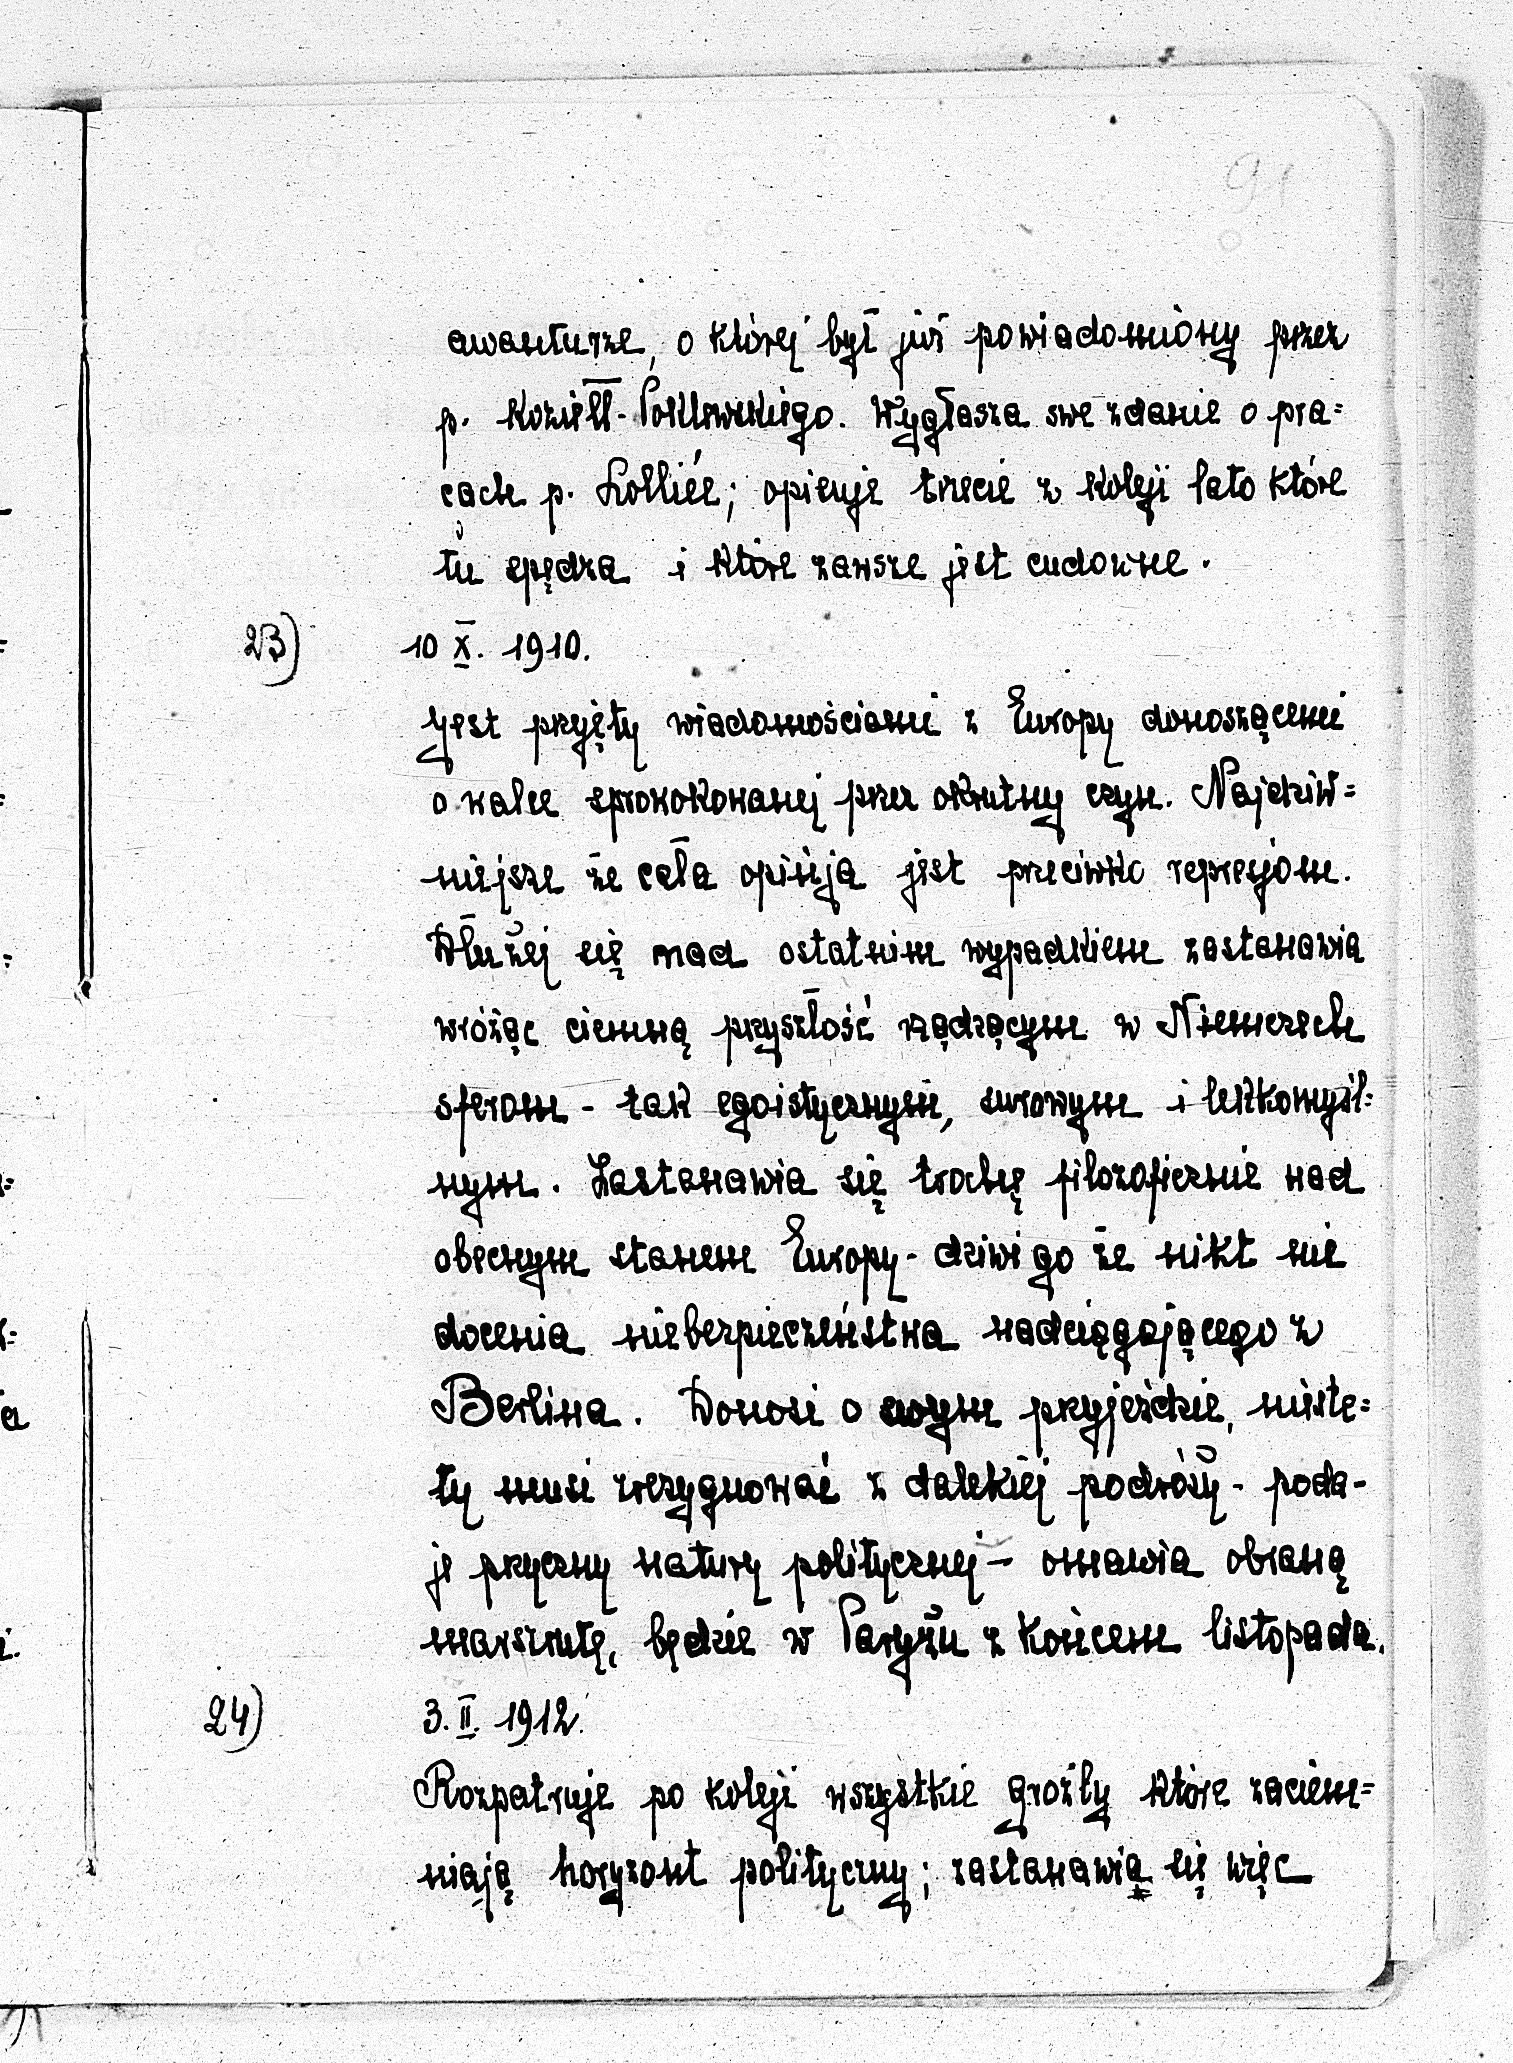 91
awanturze, o której był już powiadomiony przez
p. Koziełł-Poklewskiego. Wygłasza swe zdanie o pra=
cach p. Lolliée; opisuje trzecie z kolei lato które
tu spędza i które zawsze jest cudowne.
23) 10 X. 1910.
Jest przyjęty wiadomościami z Europy donoszącemi
o walce sprowokowanej przez okrutny czyn. Najdziw=
niejsze że cała opinja jest przeciwko represjom.
Dłużej się nad ostatnim wypadkiem zastanawia
wróżąc ciemną przyszłość rządzącym w Niemczech
sferom - tak egoistycznym, surowym i lekkomyśl=
nym. Zastanawia się trochę filozoficznie nad
obecnym stanem Europy - dziwi go że nikt nie
docenia niebezpieczeństwa nadciągającego z
Berlina. Donosi o swym przyjeździe, nieste=
ty musi zrezygnować z dalekiej podróży - poda-
je przyczny natury politycznej - omawia obraną
marszrutę, będzie w Paryżu z końcem listopada.
24) 3. II. 1912.
Rozpatruje po koleji wszystkie groźby które zaciem=
niają horyzont polityczny; zastanawia się więc